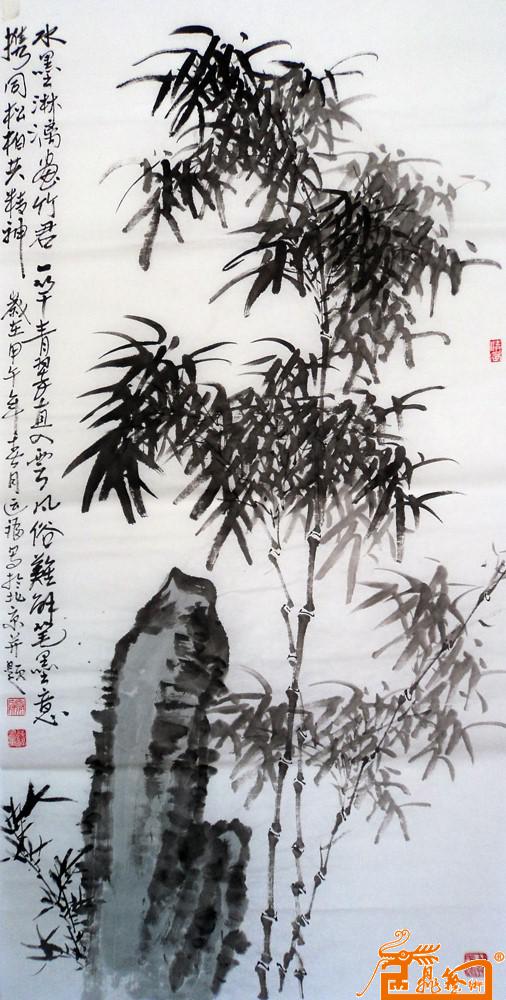 水墨淋漓画竹君一竿青翠直入雲风俗難解笔墨意
携同松柏共精神
歲在甲午年春月运福写於北京并题